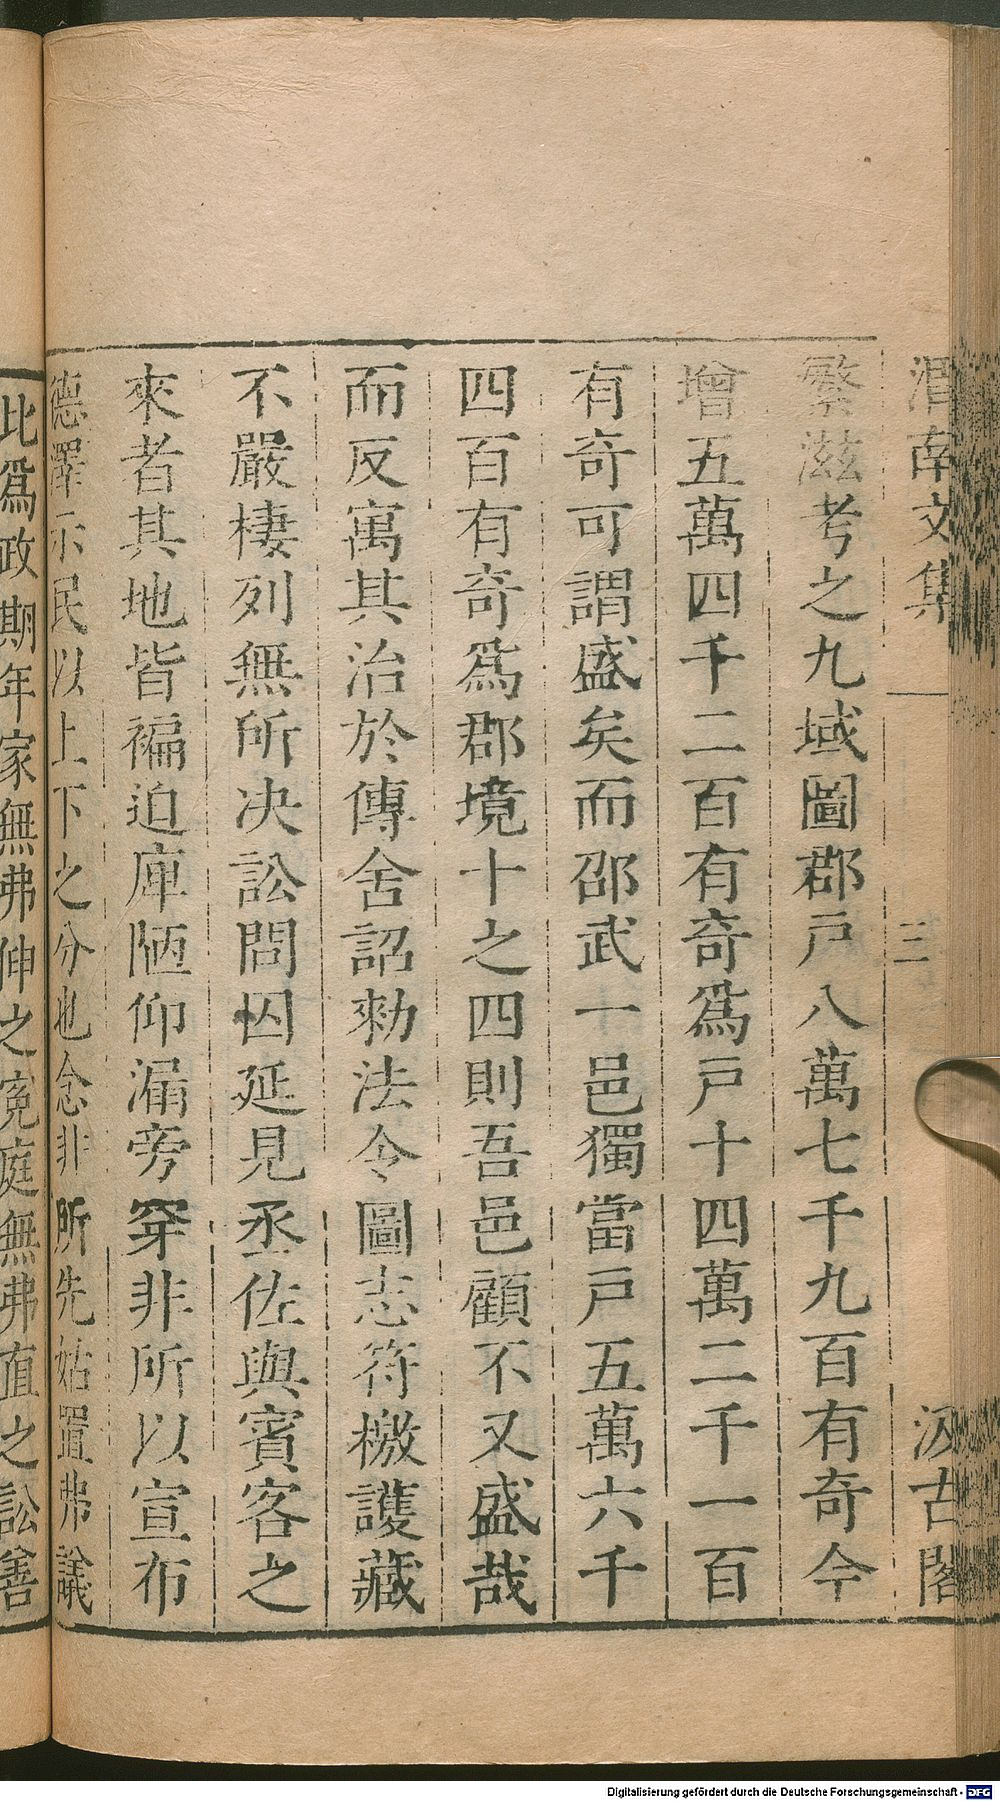 渭南文集 三 汲古閣
繁滋考之九域圖郡戸八萬七千九百有奇今
增五萬四千二百有奇爲戸十四萬二千一百
有奇可謂盛矣而邵武一邑獨當戸五萬六千
四百有奇爲郡境十之四則吾邑顧不又盛哉
而反寓其治於傳舍詔勑法令圖志符檄護藏
不嚴棲列無所决訟問囚延見丞佐與賓客之
來者其地皆褊迫庫陋仰漏旁穿非所以宣布
德澤示民以上下之分也念非所先姑置弗議
此爲政期年家無弗伸之寃庭無弗直之訟善
Digitalisierung gefördert durch die Deutsche Forschungsgemeinschaft - DFG